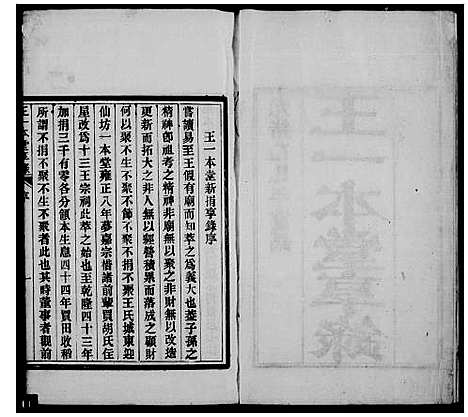 王一本堂新捐享錄序
嘗讀易至王假有廟而知萃之為義大也蓋子孫之
精神卽祖考之精神非廟無以萃之非財無以改造
更新而拓大之非人無以經營積累而落成之顧財
何以聚不生不聚不節不聚不捐不聚王氏城東迎
仙坊一本堂雍正八年夢嘉宗偕諸前輩買胡氏住
屋改爲十三王宗祠此萃之始也至乾隆四十三年
加捐三千有零各分領本生息四十四年買田收稻
所謂不捐不聚不生不聚者此也其時董事者觀前
王一本堂享錄
序
一
王一本堂享錄